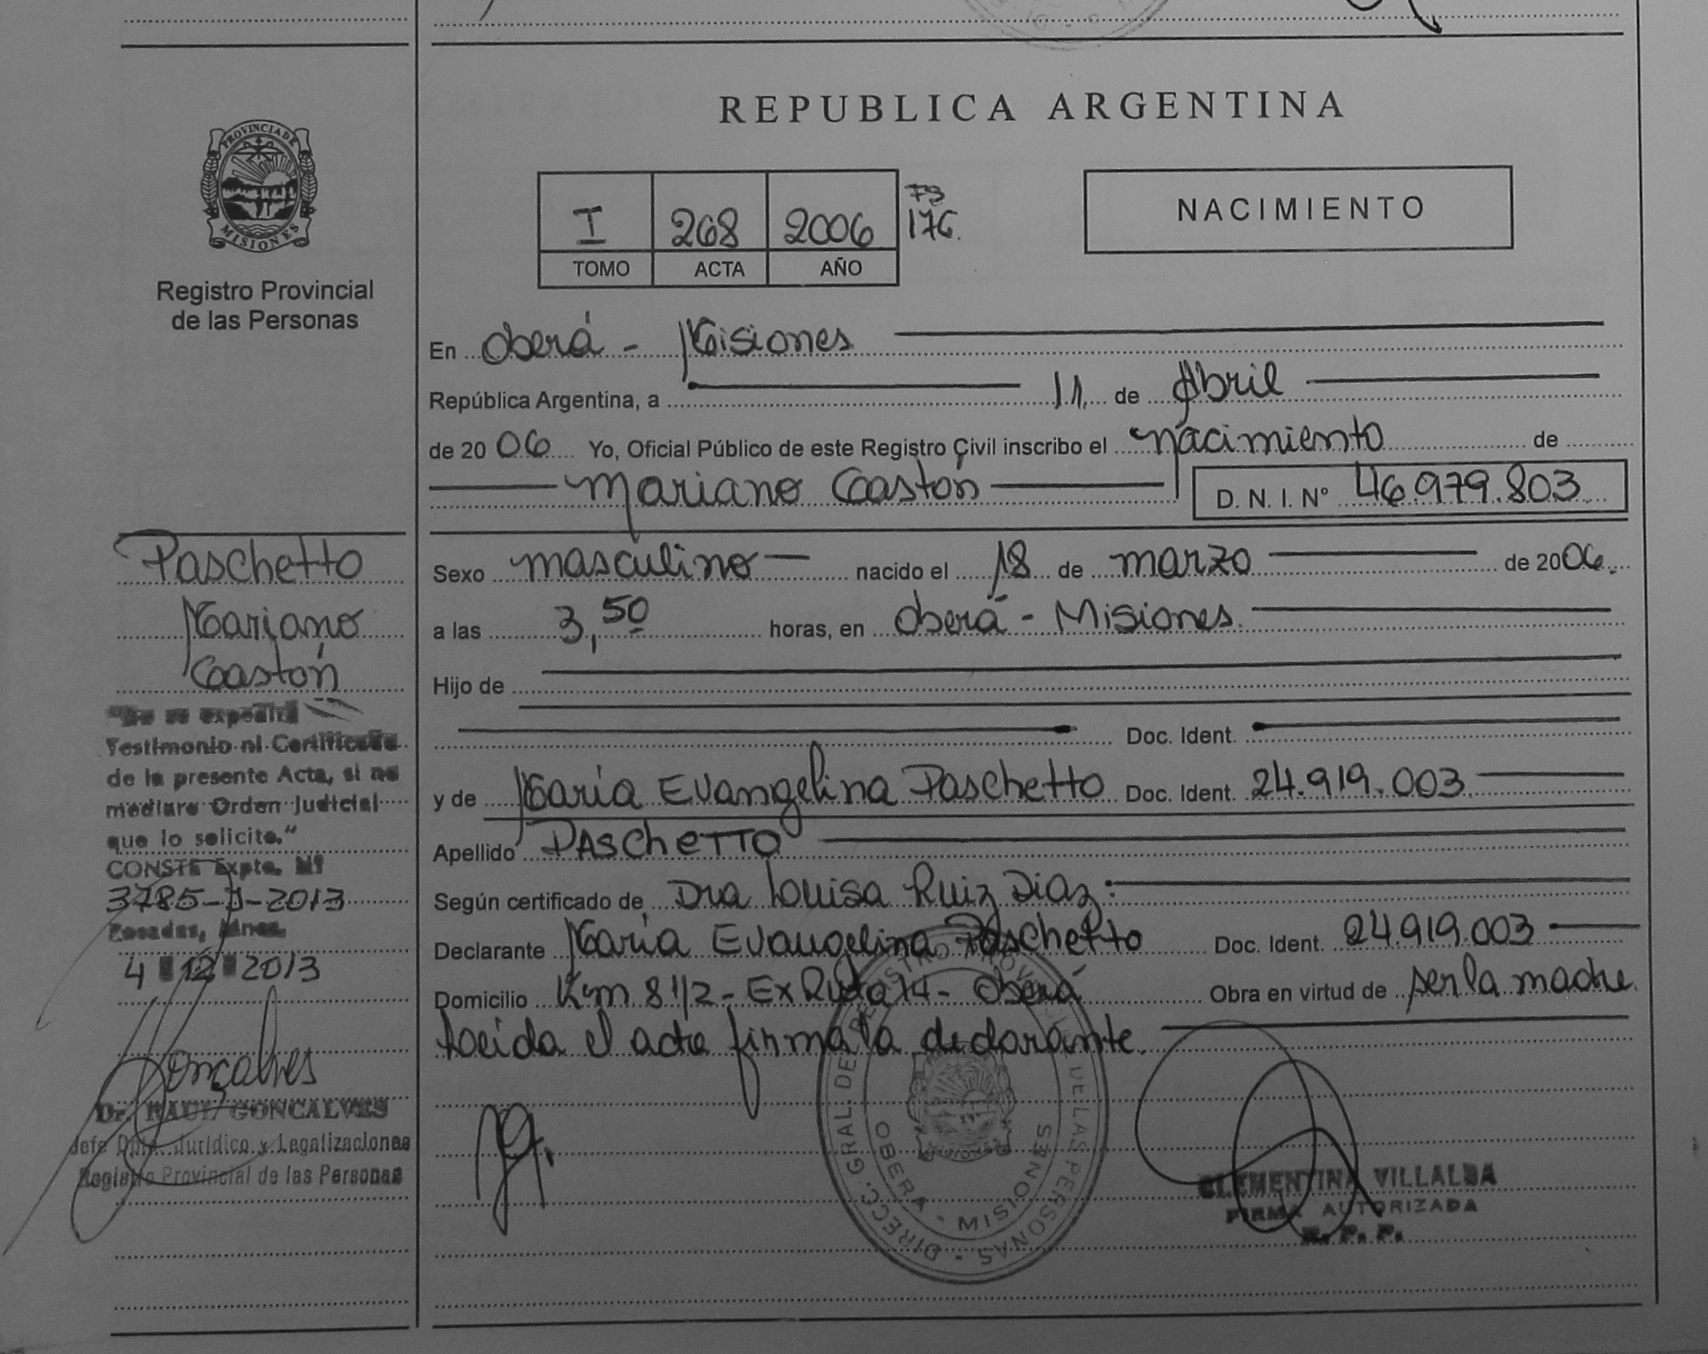 PROVINCIA DE
MISIONES
Registro Provincial
de las Personas
REPUBLICA ARGENTINA
I 268 2006 Fº 176.
TOMO ACTA AÑO
NACIMIENTO
En Oberá - Misiones
República Argentina, a 11 de Abril
de 2006 Yo, Oficial Público de este Registro Civil inscribo el nacimiento de
Mariano Gastón D. N. I. Nº 46.979.803
Sexo masculino nacido el 18 de marzo de 2006.
a las 3,50 horas, en Oberá - Misiones.
Hijo de
Doc. Ident.
y de María Evangelina Paschetto Doc. Ident. 24.919.003
Apellido PASCHETTO
Según certificado de Dra Louisa Ruiz Diaz:
Declarante María Evangelina Paschetto Doc. Ident. 24.919.003
Domicilio Km 8 1/2 - Ex Ruta 14 - Oberá Obra en virtud de ser la madre
Leida el acta firma la declarante.
Paschetto
Mariano
Gastón
"No se expedirá
Testimonio ni Certificado
de la presente Acta, si no
mediare Orden Judicial
que lo solicite."
CONSTE Expte. Nº
3785-J-2013
Posadas, Mnes.
4 12 2013
Goncalves
Dr. RAUL GONCALVES
Jefe Dpto. Jurídico y Legalizaciones
Registro Provincial de las Personas
DIRECC. GRAL. DEL REGISTRO PROVINCIAL DE LAS PERSONAS
OBERA - MISIONES
CLEMENTINA VILLALBA
FIRMA AUTORIZADA
R. P. P.